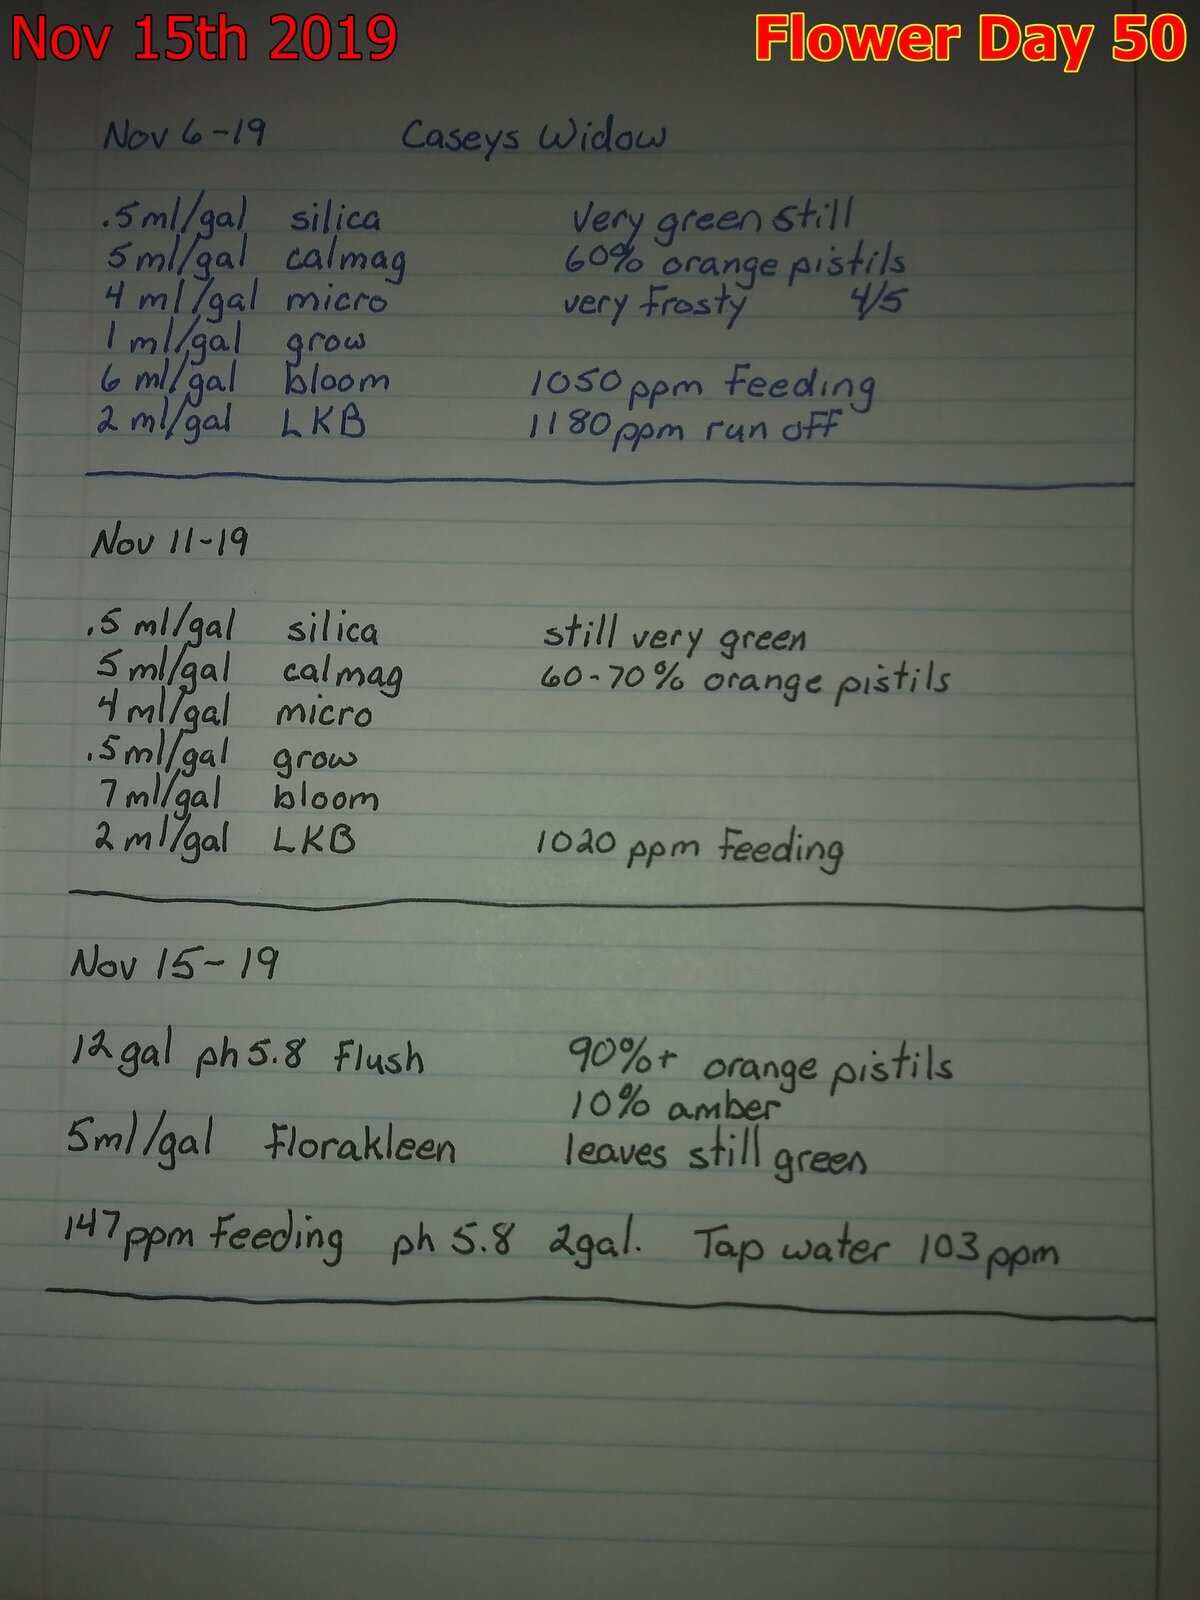 Nov 15th 2019 Flower Day 50
Nov 6-19 Caseys Widow
.5ml/gal silica Very green still
5ml/gal calmag 60% orange pistils
4 ml/gal micro very frosty 4/5
1 ml/gal grow
6 ml/gal bloom 1050 ppm feeding
2 ml/gal LKB 1180 ppm run off
Nov 11-19
.5 ml/gal silica still very green
5 ml/gal calmag 60-70% orange pistils
4 ml/gal micro
.5 ml/gal grow
7 ml/gal bloom
2 ml/gal LKB 1020 ppm feeding
Nov 15-19
12 gal ph 5.8 flush 90%+ orange pistils
10% amber
5ml/gal florakleen leaves still green
147 ppm feeding ph 5.8 2gal. Tap water 103 ppm